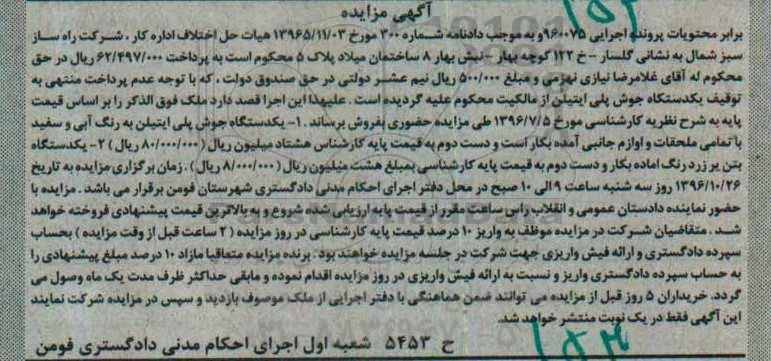 آگهی مزایده
برابر محتویات پرونده اجرایی ۹۶۰۰۷۵ و به موجب دادنامه شماره ۳۰۰ مورخ ۱۳۹۶۵/۱۱/۰۳ هیات حل اختلاف اداره کار ، شرکت راه ساز
سبز شمال به نشانی گلسار - خ ۱۲۲ کوچه بهار - نبش بهار ۸ ساختمان میلاد پلاک ۵ محکوم است به پرداخت ۶۲/۴۹۷/۰۰۰ ریال در حق
محکوم له آقای غلامرضا نیازی نهزمی و مبلغ ۵۰۰/۰۰۰ ریال نیم عشر دولتی در حق صندوق دولت ، که با توجه عدم پرداخت منتهی به
توقیف یکدستگاه جوش پلی ایتیلن از مالکیت محکوم علیه گردیده است . علیهذا این اجرا قصد دارد ملک فوق الذکر را بر اساس قیمت
پایه به شرح نظریه کارشناسی مورخ ۱۳۹۶/۷/۵ طی مزایده حضوری بفروش برساند . ۱- یکدستگاه جوش پلی ایتیلن به رنگ آبی و سفید
با تمامی ملحقات و لوازم جانبی آمده بکار است و دست دوم به قیمت پایه کارشناس هشتاد میلیون ریال ( ۸۰/۰۰۰/۰۰۰ ریال ) ۲- یکدستگاه
بتن یر زرد رنگ اماده بکار و دست دوم به قیمت پایه کارشناسی بمبلغ هشت میلیون ریال ( ۸/۰۰۰/۰۰۰ ریال ) . زمان برگزاری مزایده به تاریخ
۱۳۹۶/۱۰/۲۶ روز سه شنبه ساعت ۹ الی ۱۰ صبح در محل دفتر اجرای احکام مدنی دادگستری شهرستان فومن برقرار می باشد . مزایده با
حضور نماینده دادستان عمومی و انقلاب راس ساعت مقرر از قیمت پایه ارزیابی شده شروع و به بالاترین قیمت پیشنهادی فروخته خواهد
شد . متقاضیان شرکت در مزایده موظف به واریز ۱۰ درصد قیمت پایه کارشناسی در روز مزایده ( ۲ ساعت قبل از وقت مزایده ) بحساب
سپرده دادگستری و ارائه فیش واریزی جهت شرکت در جلسه مزایده خواهند بود . برنده مزایده متعاقبا مازاد ۱۰ درصد مبلغ پیشنهادی را
به حساب سپرده دادگستری واریز و نسبت به ارائه فیش واریزی در روز مزایده اقدام نموده و مابقی حداکثر ظرف مدت یک ماه وصول می
گردد. خریداران ۵ روز قبل از مزایده می توانند ضمن هماهنگی با دفتر اجرایی از ملک موصوف بازدید و سپس در مزایده شرکت نمایند
این آگهی فقط در یک نوبت منتشر خواهد شد.
ح ۵۴۵۳ شعبه اول اجرای احکام مدنی دادگستری فومن